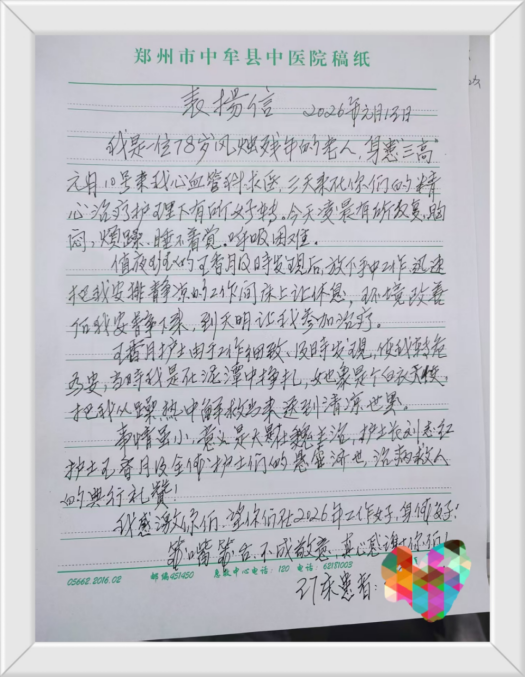 郑州市中牟县中医院稿纸
表揚信 2026年元月13日
我是一位78岁风烛残年的老人，身患三高
元月10号来我心血管科求医，三天来在你们的精
心治疗护理下有所好转。今天凌晨有所反复，胸
闷，烦躁、睡不着觉。呼吸困难。
值夜班的王香月及時发现后，放下手中工作，迅速
把我安排静凉的工作间床上让休息，环境改善
后我安静下来，到天明让我参加治疗。
王香月护士由于工作细致，及時发现，使我转危
为安，当時我是在泥潭中挣扎，她象是个白衣天使，
把我从躁热中解救出来送到清凉世界。
事情虽小，意义是大魏主治，护士长刘志红
护士王香月及全体护士们的悬壶济世，治病救人
的典行礼赞！
我感激你们，望你们在2026年工作好，身体好！
笨嘴笨舌，不成敬意，真心感谢你们！
05662.2016.02 邮编451450 急救中心电话：120 电话：62181003
31床患者：